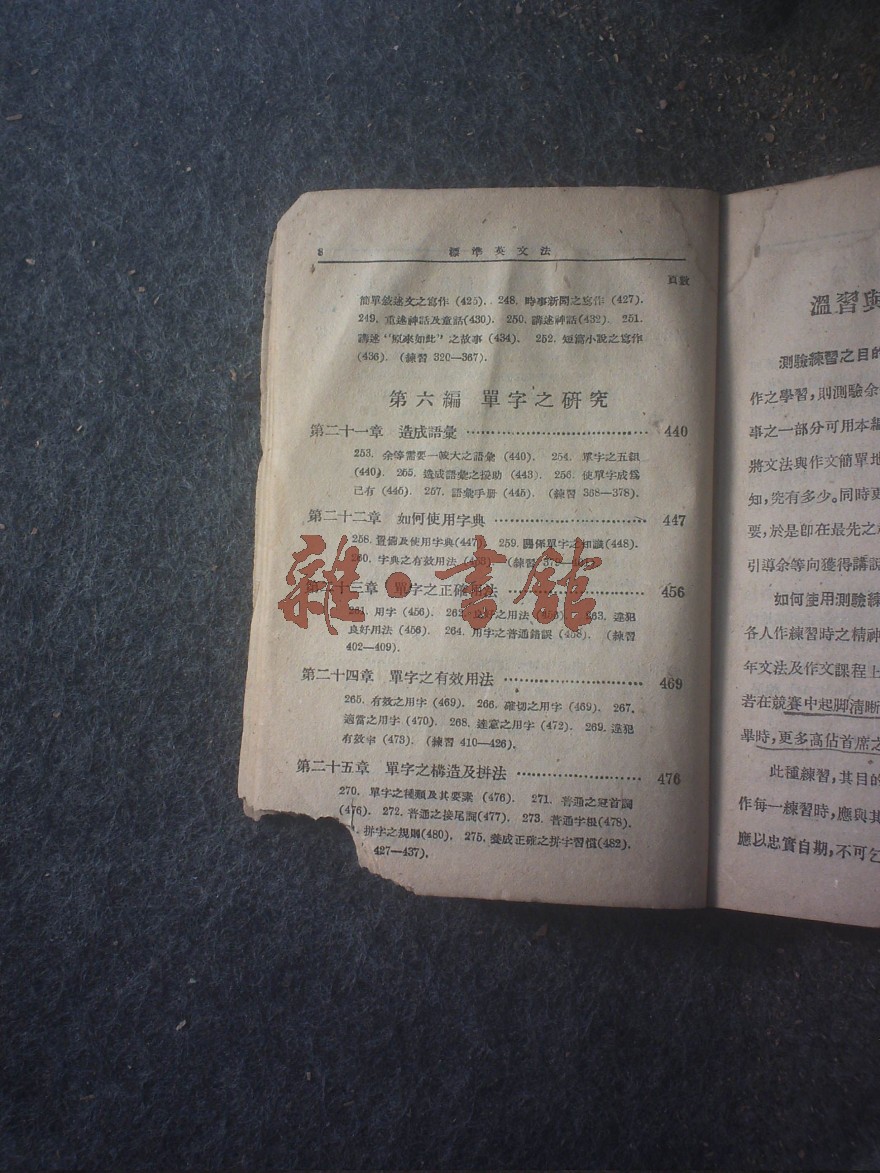 8 標準英文法
頁數
簡單敍述文之寫作 (425). 248. 時事新聞之寫作 (427).
249. 重述神話及童話(430). 250. 講述神話(432). 251.
講述“原來如此”之故事 (434). 252. 短篇小說之寫作
(436). (練習 320—367).
第六編 單字之研究
第二十一章 造成語彙 440
253. 余等需要一較大之語彙 (440). 254. 單字之五組
(440). 255. 造成語彙之援助 (443). 256. 使單字成爲
已有 (445). 257. 語彙手册 (445). (練習 368—378).
第二十二章 如何使用字典 447
258. 置備及使用字典(447). 259. 關係單字之知識(448).
260. 字典之有效用法 (練習
第二十三章 單字之正確用法 456
261. 用字 (456). 262. 良好之用法 263. 違犯
良好用法 (456). 264. 用字之普通錯誤 (458). (練習
402—409).
第二十四章 單字之有效用法 469
265. 有效之用字 (469). 266. 確切之用字 (469). 267.
適當之用字 (470). 268. 達意之用字 (472). 269. 違犯
有效率 (473). (練習 410—426).
第二十五章 單字之構造及拼法 476
270. 單字之種類及其要素 (476). 271. 普通之冠首詞
(476). 272. 普通之接尾詞(477). 273. 普通字根(478).
拼字之規則(480). 275. 養成正確之拼字習慣(482).
427—437).
雜·書館
溫習與
測驗練習之目的
作之學習,則測驗余
事之一部分可用本編
將文法與作文簡單地
知,究有多少。同時更
要,於是卽在最先之
引導余等向獲得講說
如何使用測驗練
各人作練習時之精神
年文法及作文課程上
若在競賽中起脚清晰
畢時,更多高佔首席之
此種練習,其目的
作每一練習時,應與其
應以忠實自期,不可乞